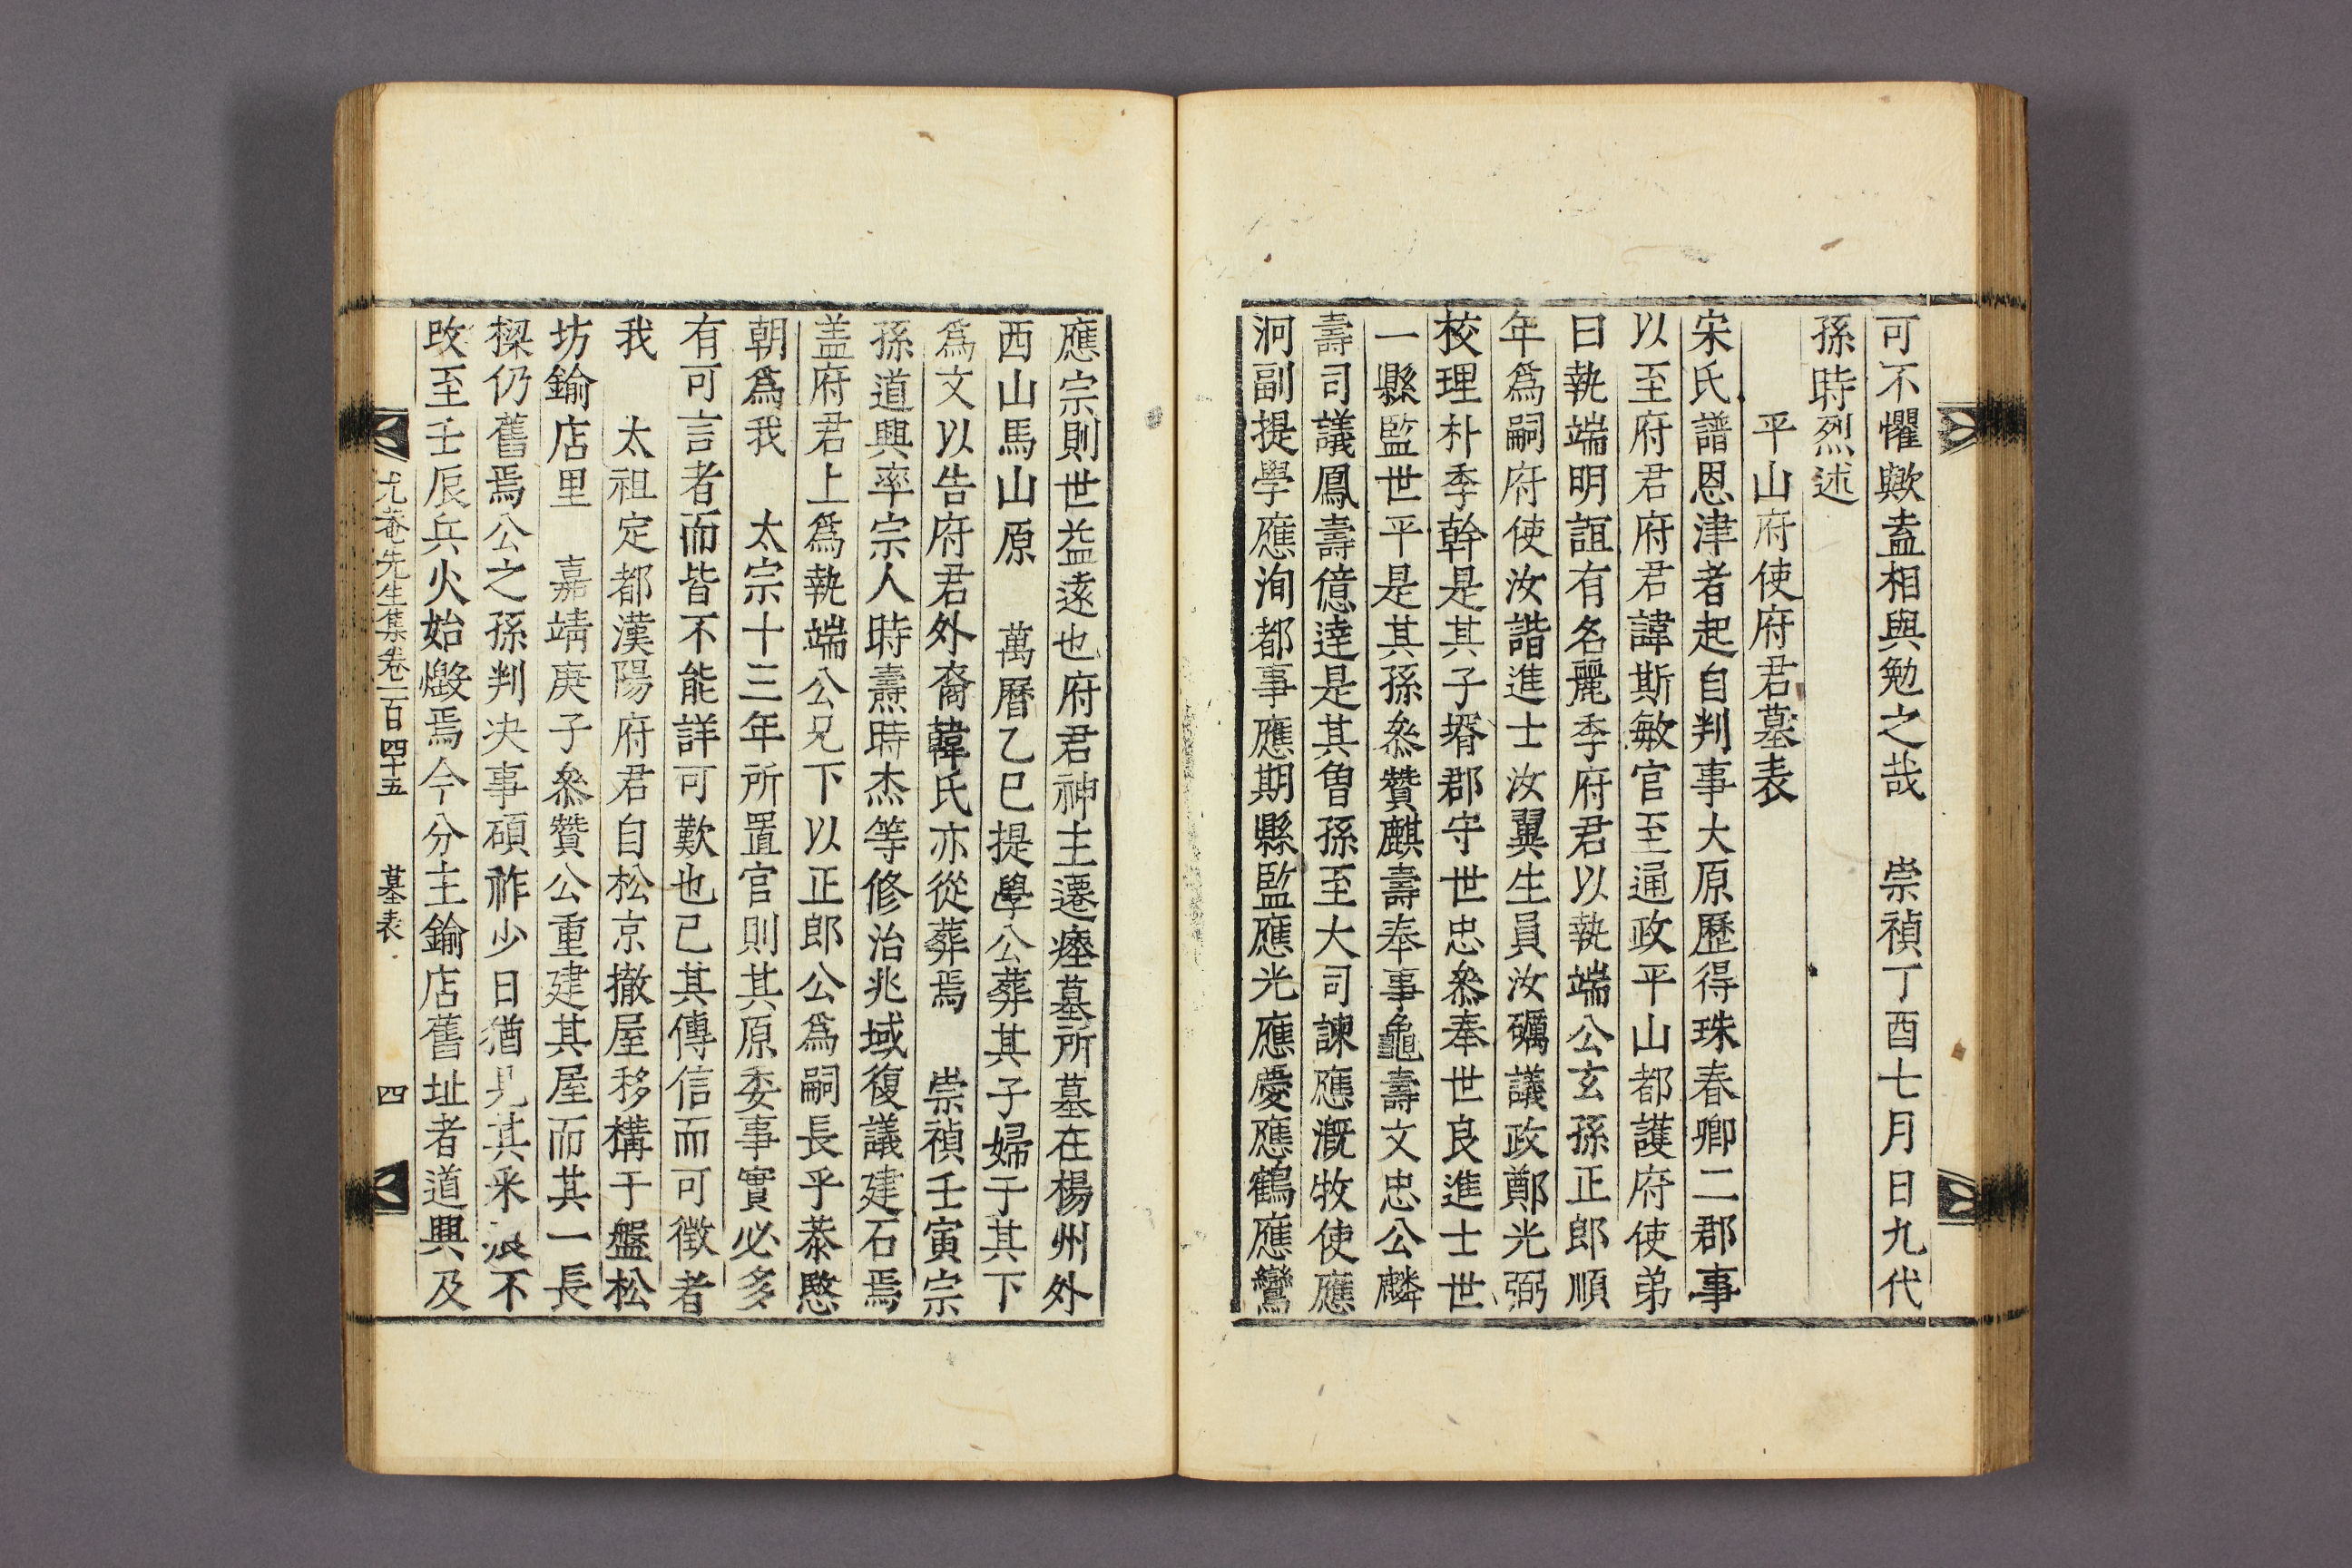 可不懼歟盍相與勉之哉　崇禎丁酉七月日九代
孫時烈述
平山府使府君墓表
宋氏譜恩津者起自判事大原歷得珠春卿二郡事
以至府君府君諱斯敏官至通政平山都護府使弟
曰執端明誼有名麗季府君以執端公玄孫正郎順
年爲嗣府使汝諧進士汝翼生員汝礪議政鄭光弼
校理朴季幹是其子壻郡守世忠叅奉世良進士世
一縣監世平是其孫叅贊麒壽奉事龜壽文忠公麟
壽司議鳳壽億達是其曾孫至大司諫應漑牧使應
泂副提學應洵都事應期縣監應光應慶應鶴應鸞
應宗則世益遠也府君神主遷瘞墓所墓在楊州外
西山馬山原　萬曆乙巳提學公葬其子婦于其下
爲文以告府君外裔韓氏亦從葬焉　崇禎壬寅宗
孫道興率宗人時燾時杰等修治兆域復議建石焉
盖府君上爲執端公兄下以正郎公爲嗣長乎恭愍
朝爲我　太宗十三年所置官則其原委事實必多
有可言者而皆不能詳可歎也已其傳信而可徵者
我　太祖定都漢陽府君自松京撤屋移構于盤松
坊鍮店里　嘉靖庚子叅贊公重建其屋而其一長
樑仍舊焉公之孫判决事碩祚少日猶見其釆椽不
改至壬辰兵火始燬焉今分主鍮店舊址者道興及
尤菴先生集卷一百四十五　墓表　四